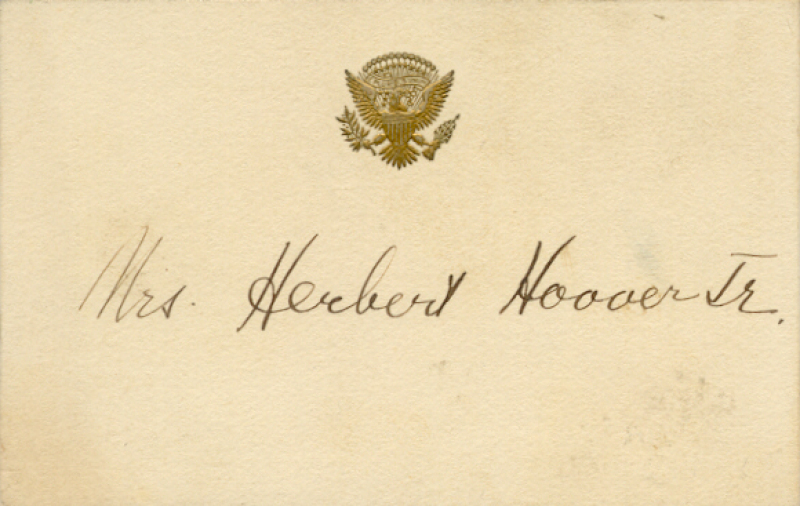 Mrs. Herbert Hoover Jr.